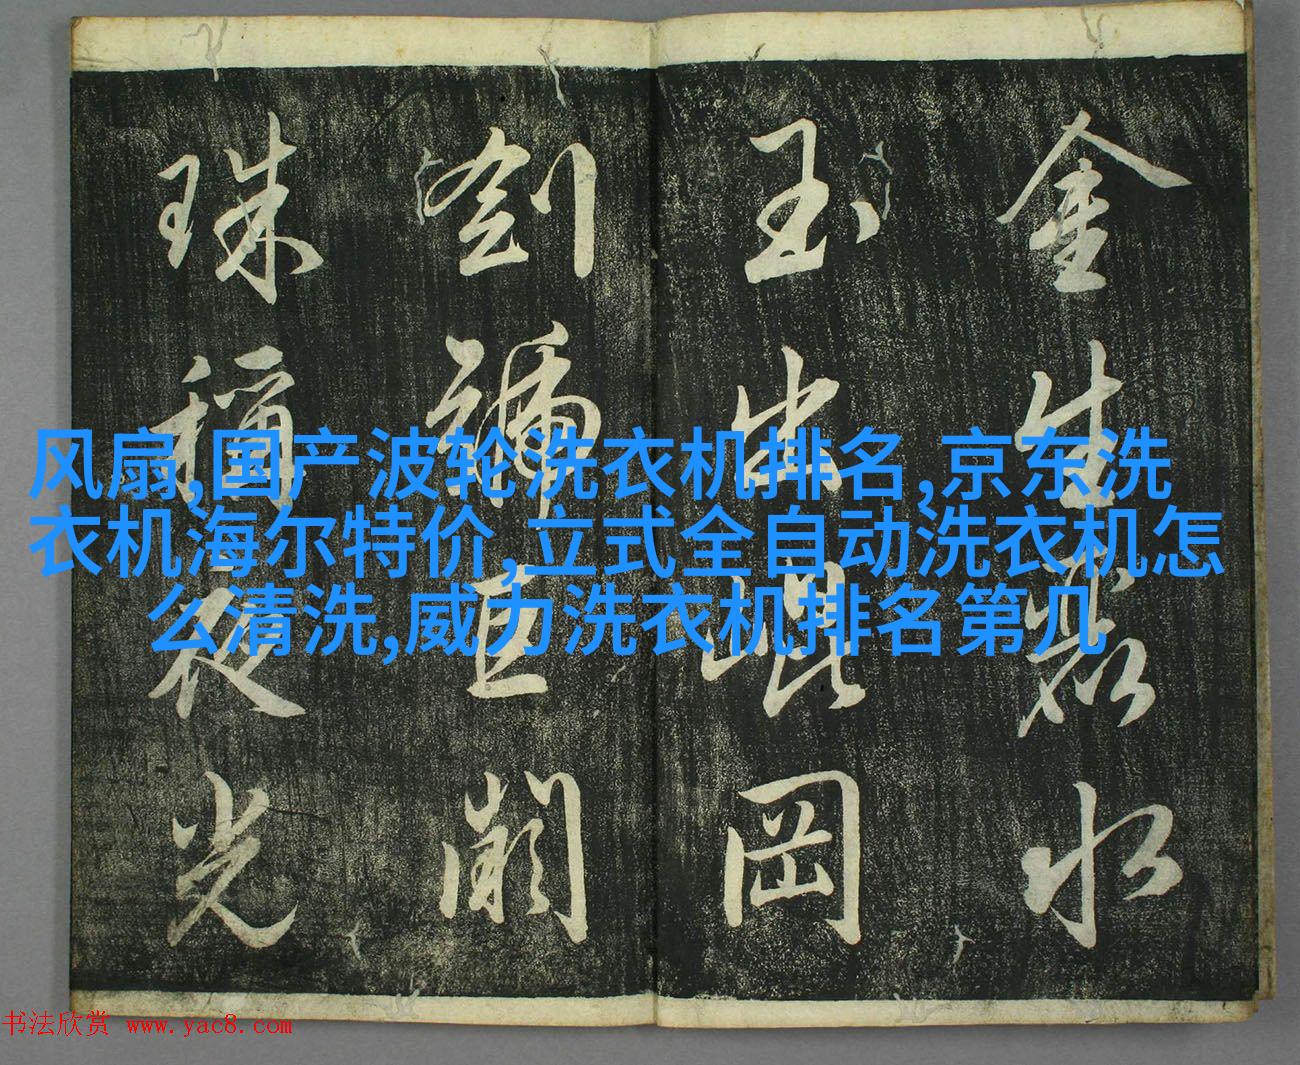 金生麗水
玉出崐岡
劍號巨闕
珠稱夜光
风扇,国产波轮洗衣机排名,京东洗
衣机海尔特价,立式全自动洗衣机怎
么清洗,威力洗衣机排名第几
书法欣赏 www.yac8.com